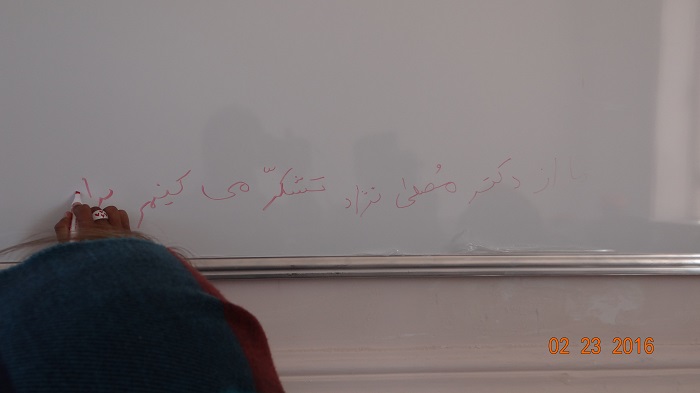 ما از دکتر مُصلی نژاد تشکّر می کینم برا
02 23 2016